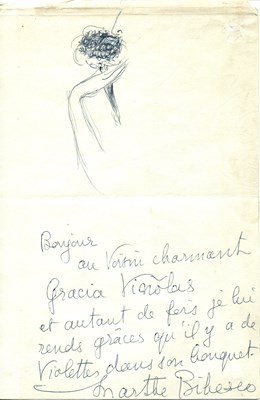 Bonjour
au Voisin charmant
Gracia Viñolas
et autant de fois je lui
rends grâces qu'il y a de
Violettes dans son bouquet.
Marthe Bibesco